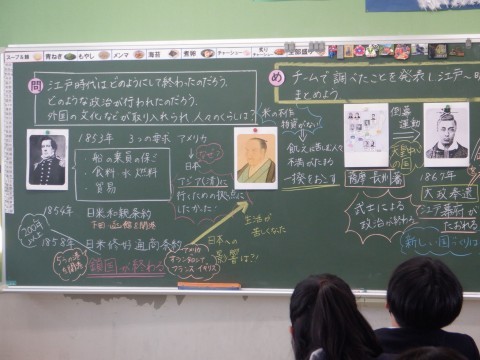 スープ&麺 青ねぎ もやし メンマ 海苔 煮卵 チャーシュー
問 江戸時代はどのようにして終わったのだろう。
どのような政治が行われたのだろう。
外国の文化などが取り入れられ、人々のくらしは?
1853年 3つの要求 アメリカ
・船の乗員の保ご
・食料 水 燃料
・貿易
なぜ?
日本
アジア(清)に
行くための拠点に
したかった
1854年 日米和親条約
下田・函館を開港
200年
1858年 日米修好通商条約
5つの港を開港
鎖国が終わる
アメリカ
オランダ ロシア
フランス イギリス
日本への
影響は?
生活が
苦しくなった
米の不作
物資がない
食えずに苦しむ人
不満がたまる
一揆をおこす
め チームで調べたことを発表し江戸〜明
まとめよう
倒幕
運動
薩摩 長州藩
武士による
政治が終わる
1867年
大政奉還
江戸幕府が
たおれる
新しい国づくりは